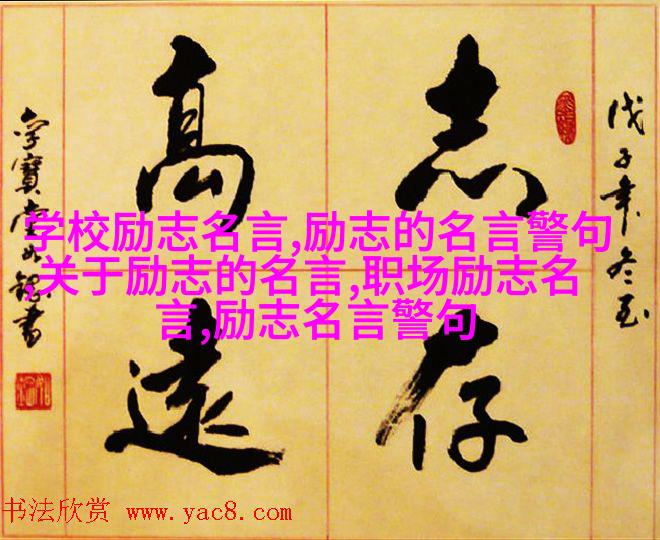 戊子年冬至
志存
高遠
学校励志名言,励志的名言警句
,关于励志的名言,职场励志名
言,励志名言警句
书法欣赏 www.yac8.com